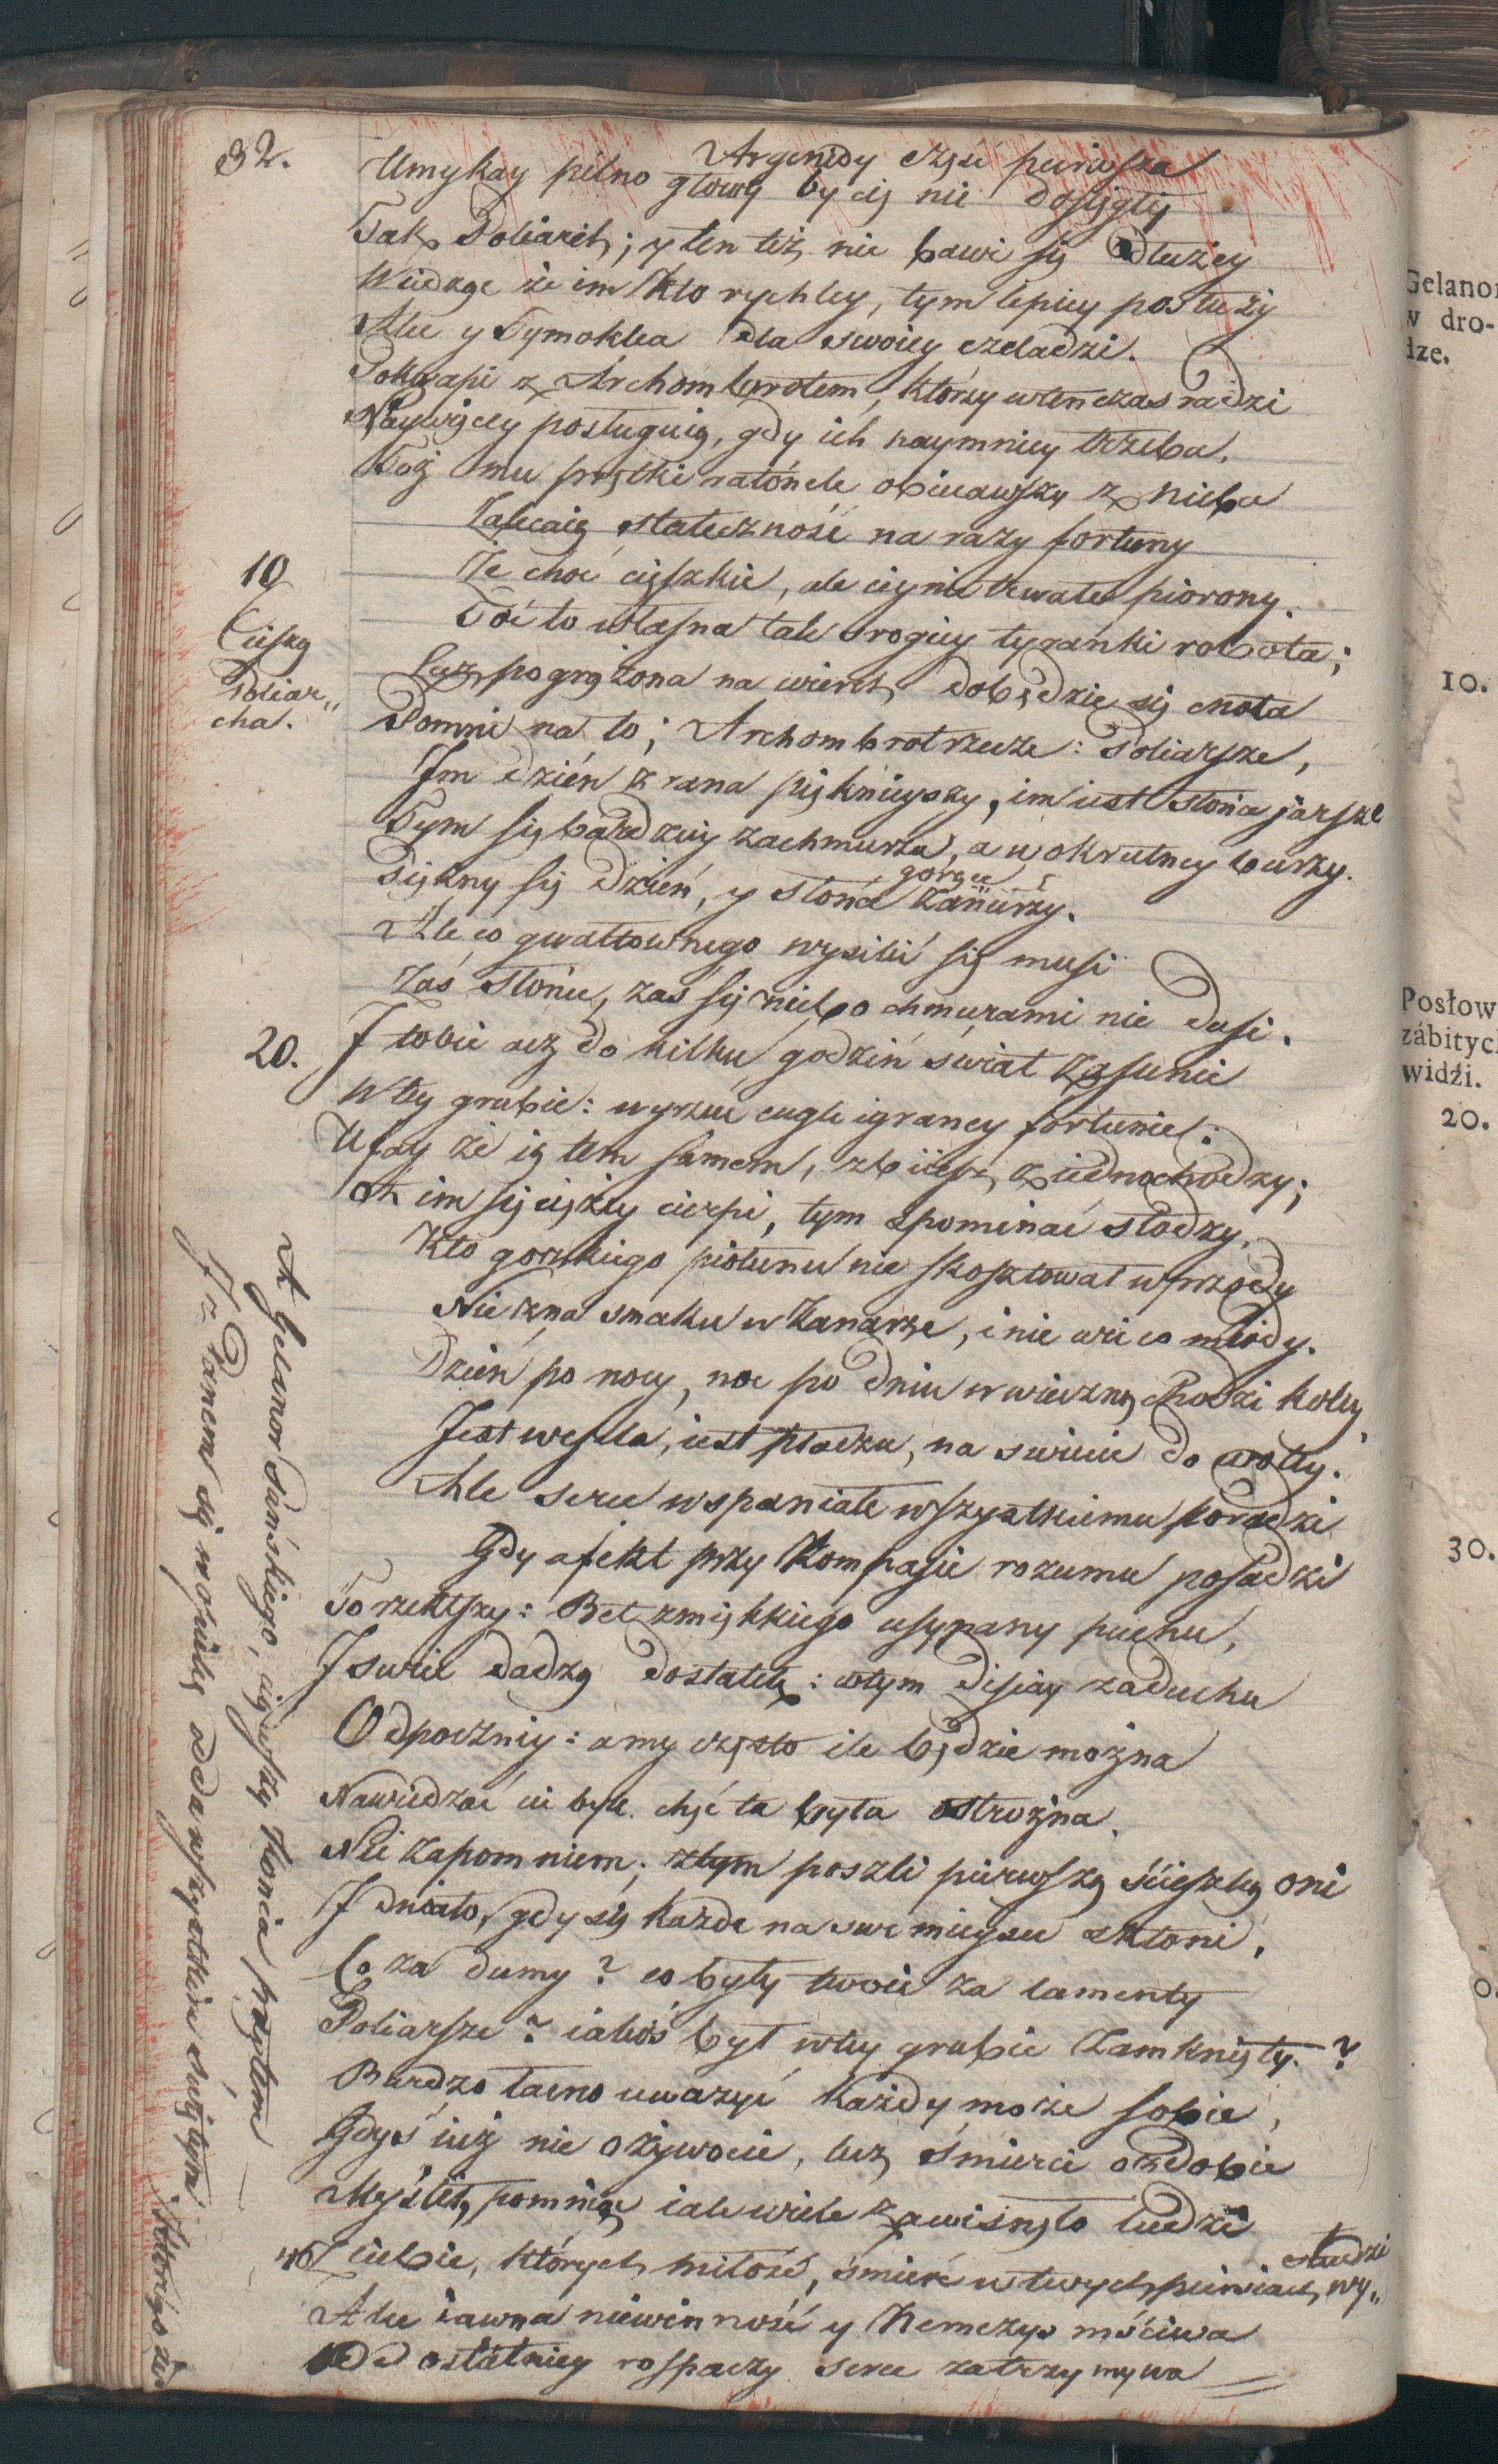 32.
Argenidy część pierwsza
Umykay pilno głowy by cię nie dosięgły
Tak Poliarch; y ten też nie bawi się dłużey
Wiedząc że im kto rychley, tym lepiey posłuży
Ale y Tymoklea dla swoiey czeladzi.
Pokwapi z Archombrotem, ktorzy wtenczas radzi
Naywięcey posługuią, gdy ich naymniey trzeba.
Toż mu prętki ratónek obiecawszy z nieba
Zalecaią stateczność na razy fortuny
Że choć cięszkie, ale iey nie trwałe piorony.
Toć to własna tak srogiey tyranki robota;
Lecz pogrążona na wierch dobędzie się cnota
10
Cieszą
Poliar„
cha.
Pomni na to; Archombrot rzecze: Poliarsze,
Im dzień z rana pięknieyszy, im iest słońce jarsze
Tym się bardziey zachmurza, a w okrutney burzy.
gorące
Piękny się dzień, y słońce zanurzy.
Ale co gwałtownego wysilić się musi
Zaś słońce, zaś się niebo chmurami nie dusi.
20.
I tobie acz do kilku godzin świat zasunie
W tey grubie: wyrzuć cugle igraney fortunie:
Ufay że ią tem samem, zbiiesz z iednochodzy;
im się ciężey cierpi, tym spominać słodzy,
Kto gorzkiego piołunu nie skosztował wprzody
Nie zna smaku w Kanarze, i nie wie co miody.
Dzień po nocy, noc po dniu w wieczney chodzi koley
Jest wesela, iest płaczu, na swiecie do woley.
Ale serce wspaniałe wszystkiemu poradzi
Gdy afekt przy kompasie rozumu posadzi
To rzekszy: Bet z miękkiego usypany puchu,
I swiec dadzą dostatek: w tym disiay zaduchu
Odpoczniy: a my często ile będzie można
Nawiedzać cię byle chęć ta była ostrożna.
Nie zapomniem; z tym poszli pierwszą ścieszką oni
I dniało, gdy się każde na swe mieysce skłoni,
Co za dumy? co były twoie za lamenty
Poliarsze? iakoś był w tey grubie zamknięty.?
Bardzo łacno uważyć każdy może sobie,
Gdyś iuż nie o żywocie, lecz śmierci ozdobie
Myślił, pomniąc iak wiele zawisnęło ludzi
40
Z ciebie, których miłość, śmierć w twych pierwiach wy„
studzi
Ale iawna niewinność y Nemezys mściwa
Od ostatniey rospaczy serce zatrzymywa
A Gelanor Pańskiego, ciąwszy konia prętem
I z Panem się w oniską oddawszy